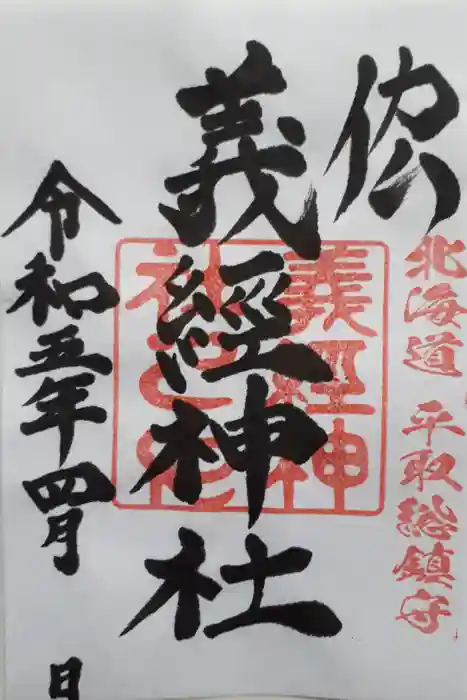 北海道 平取総鎮守
義經神社
義經神
社之印
令和五年四月 日